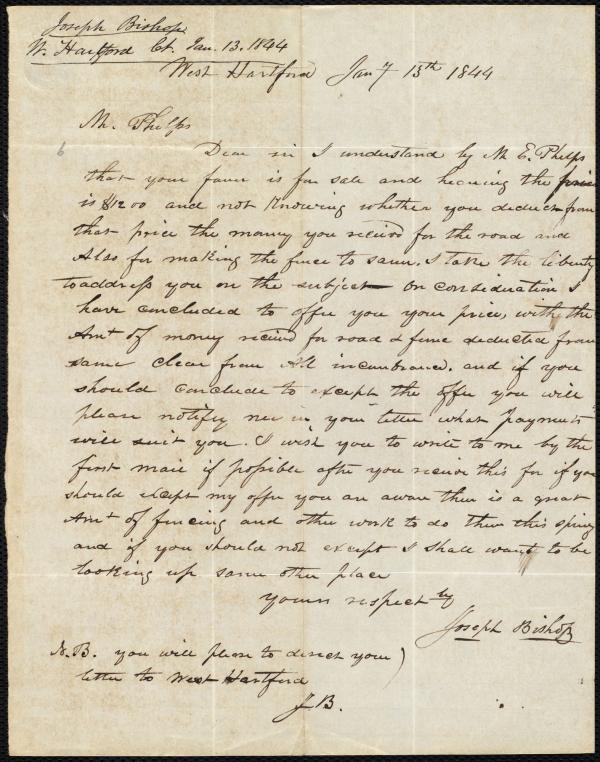 Joseph Bishop,
W. Hartford Ct. Jan. 13. 1844
West Hartford Jany 13th 1844
Mr. Phelps
Dear sir I understand by Mr E. Phelps
that your farm is for sale and hearing the price
is $1200 and not Knowing whether you deduct from
that price the money you receivd for the road and
Also for making the fence to same. I take the liberty
to address you on the subject - on consideration I
have concluded to offer you your price, with the
Amt of money receivd for road & fence deducted from
same clear from All incumbrance. and if you
should conclude to except the offer you will
please notify me in your letter what payments
will suit you. I wish you to write to me by the
first mail if possible after you receive this for if you
should except my offer you are aware there is a great
Amt of fencing and other work to do there this spring
and if you should not except I shall want to be
looking up some other place
yours respectly
Joseph Bishop
N.B. you will please to direct your
letter to West Hartford
J B.